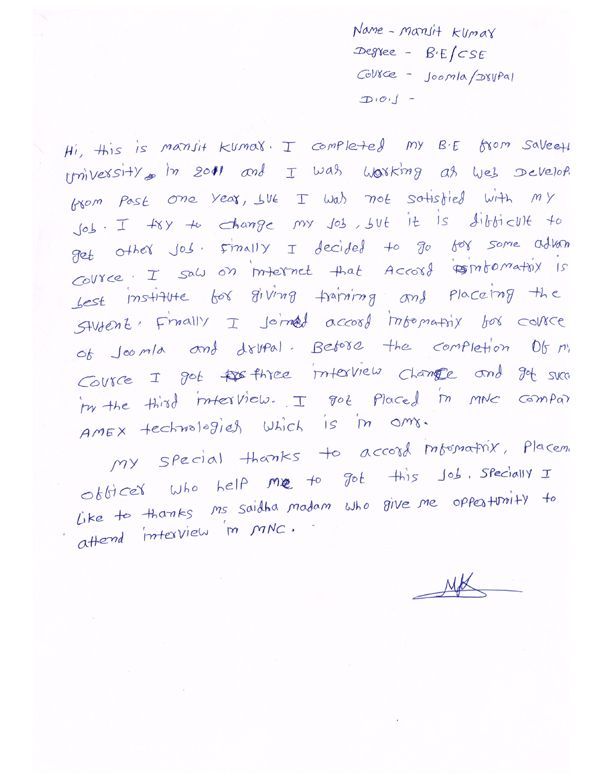 Name - Manjit Kumar
Degree - B.E/CSE
Cource - Joomla/Drupal
D.O.J -
Hi, this is manjit kumar. I completed my B.E from Saveet
university. in 2011 and I was working as web Develop
from past one year, but I was not satisfied with my
Job. I try to change my job, but it is difficult to
get other job. Finally I decided to go for some advan
cource. I saw on internet that Accord infomatrix is
best institute for giving training and placeing the
student. Finally I joined accord infomatrix for cource
of Joomla and drupal. Before the completion Of m
cource I got three interview chance and got succ
in the third interview. I got placed in MNC compan
AMEX technologies which is in omr.
My special thanks to accord infomatrix, placem
officer who help me to got this job. Specially I
like to thanks ms saidha madam who give me opportunity to
attend interview in MNC.
MK